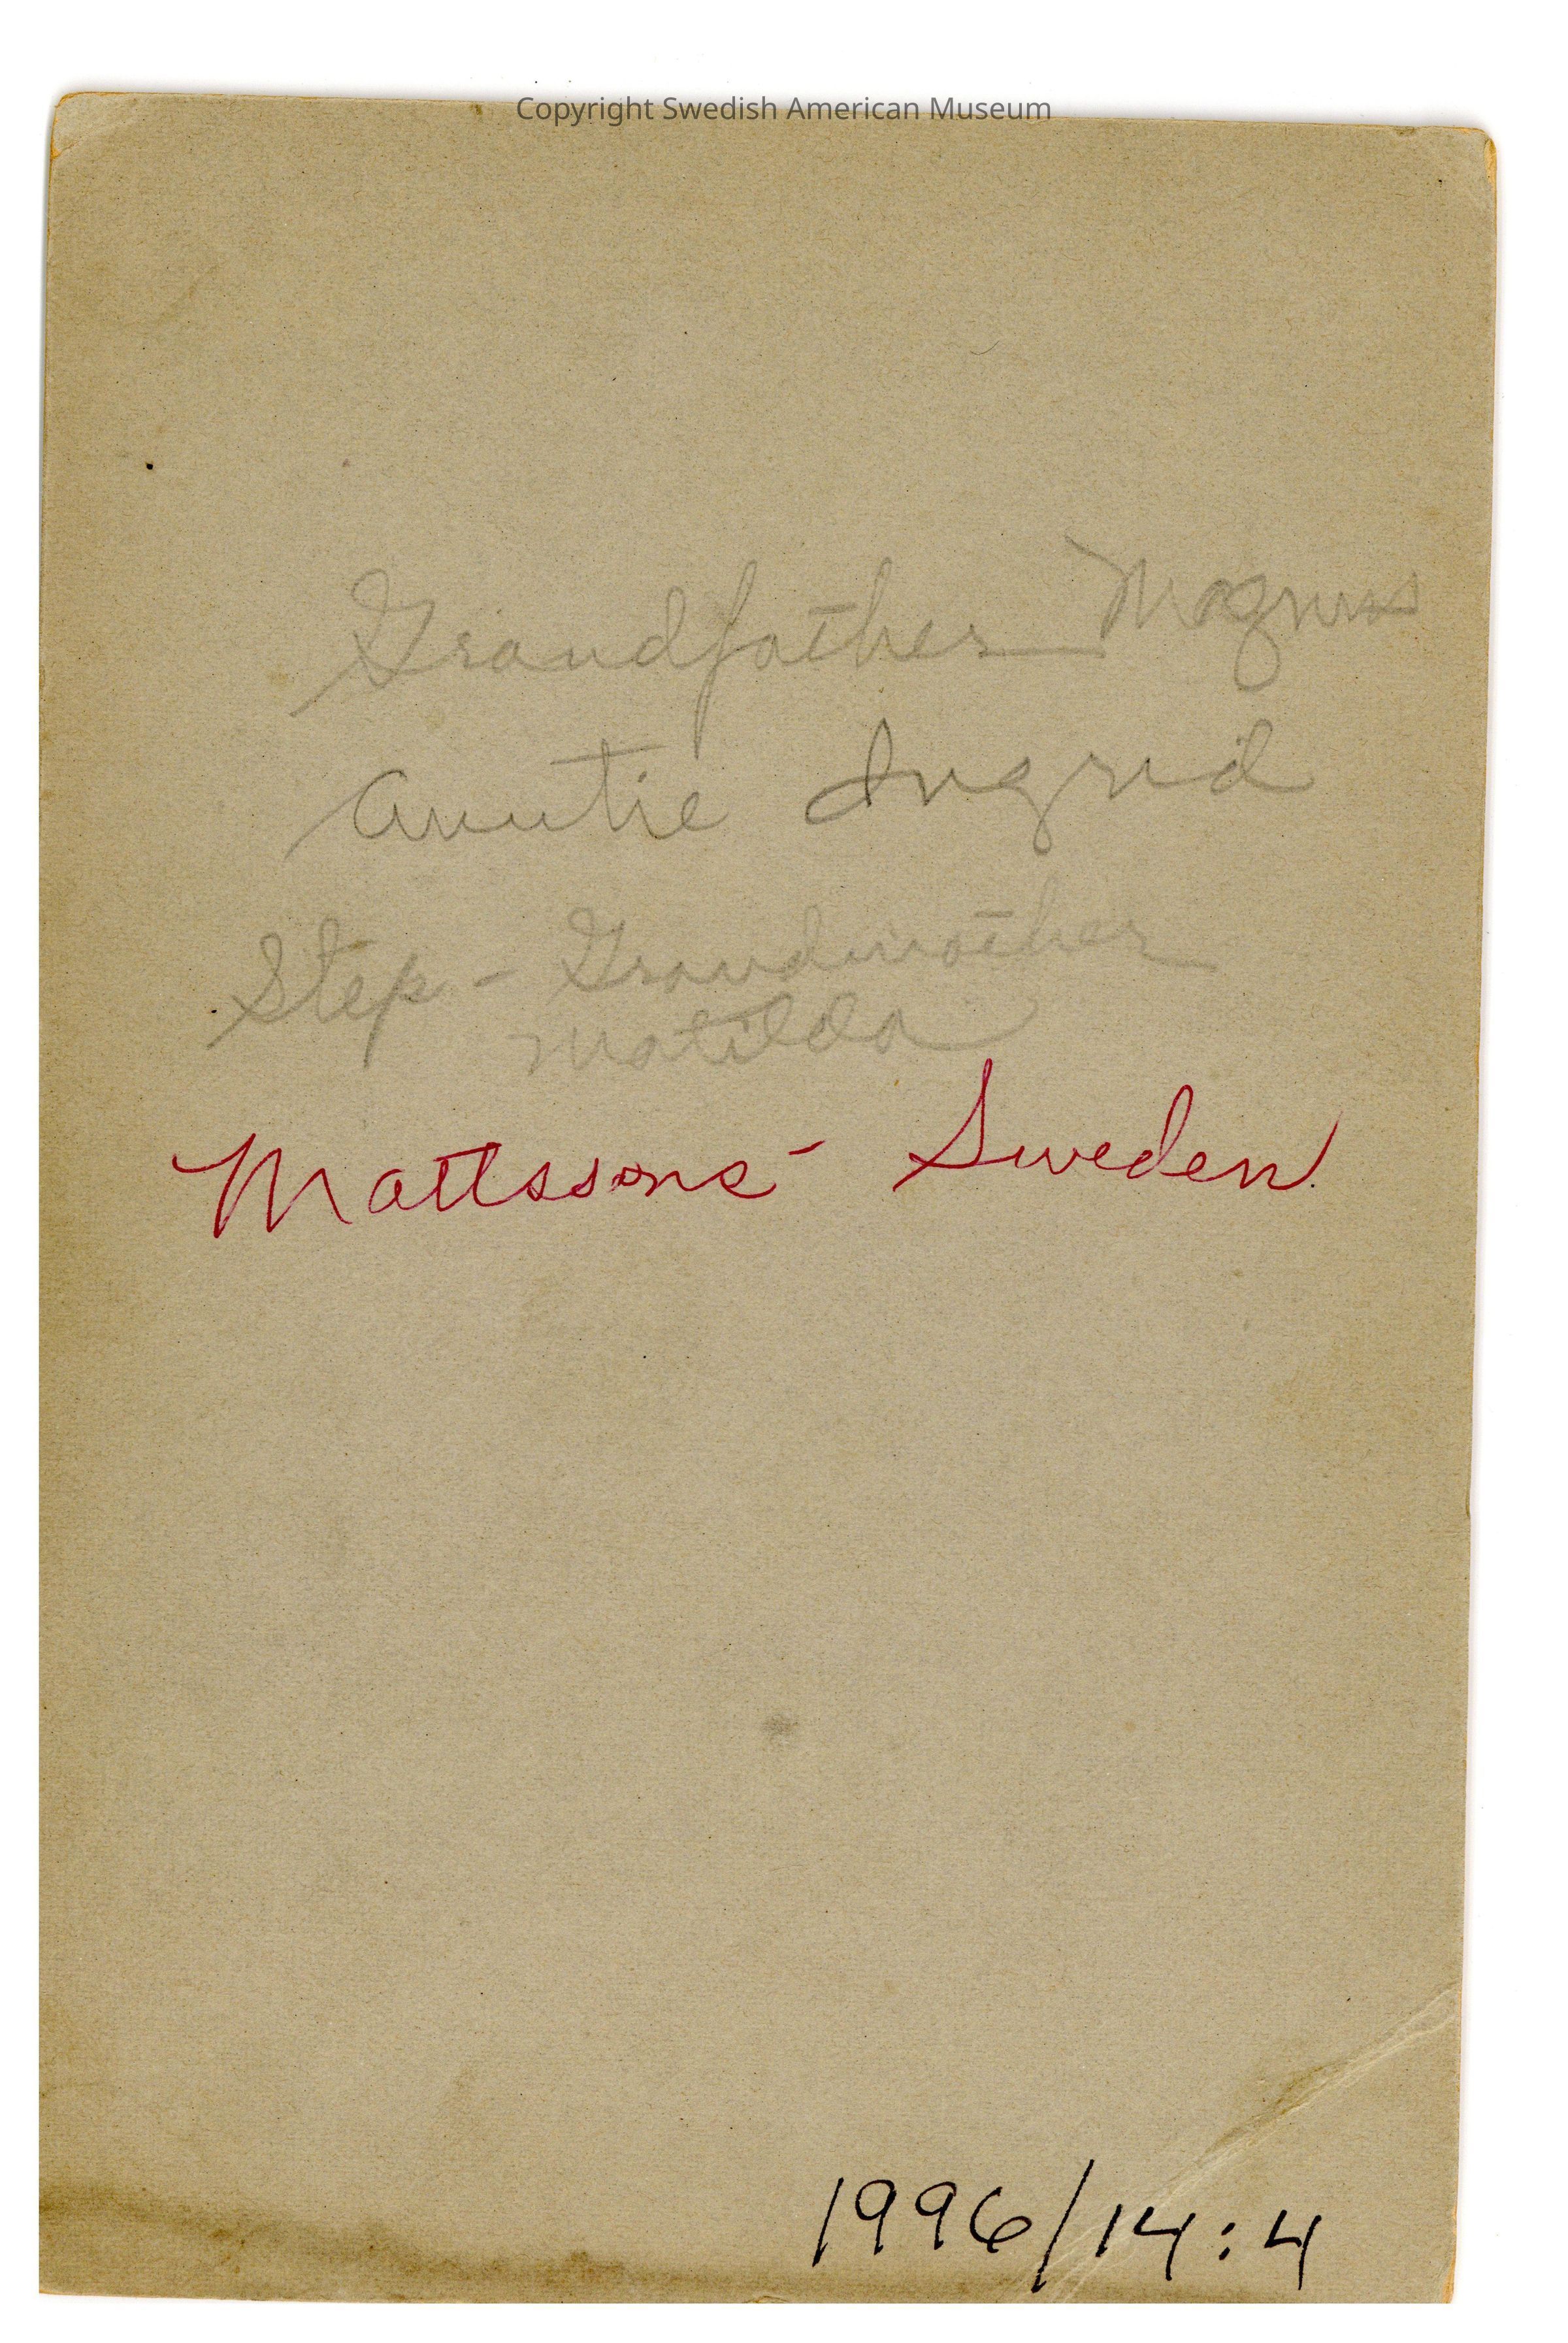 Copyright Swedish American Museum
Grandfather Magnus
Auntie Ingrid
Step - Grandmother
Matilda
Mattssons - Sweden
1996/14:4